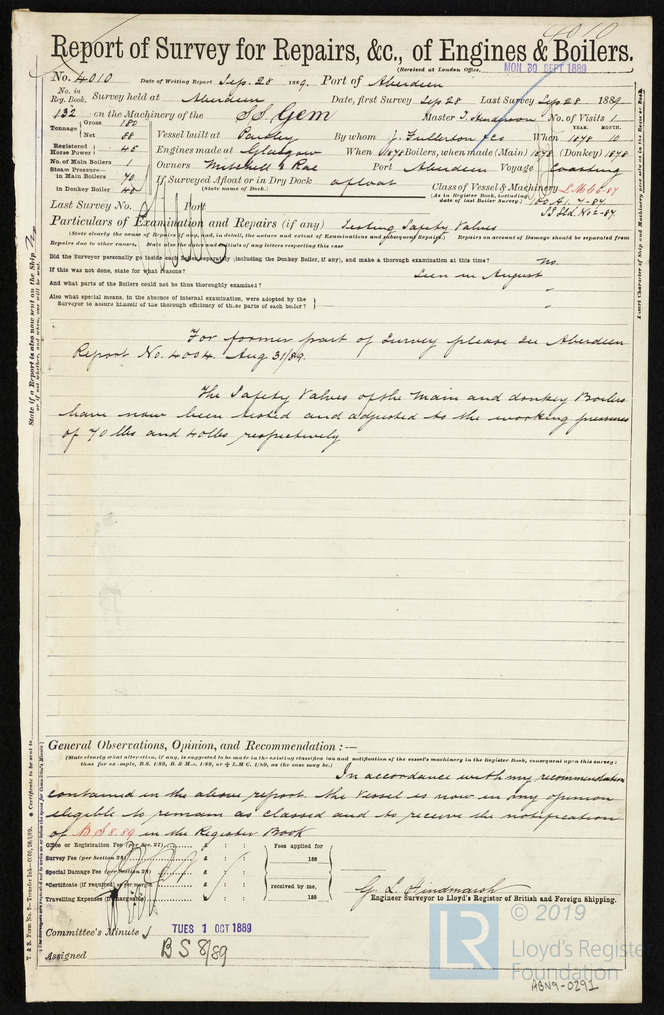 4010
Report of Survey for Repairs, &c., of Engines & Boilers.
(Received at London Office, MON 30 SEPT 1889
No. 4010 Date of Writing Report Sep. 28 1889. Port of Aberdeen
No. in Reg. Book. Survey held at Aberdeen Date, first Survey Sep 28 Last Survey Sep 28 1889
132 on the Machinery of the S.S. Gem Master T. Henderson No. of Visits 1
Tonnage Gross 180 Net 88
Vessel built at Paisley By whom J. Fullerton & Co When YEAR. 1878 MONTH. 10
Registered Horse Power 45 Engines made at Glasgow When 1878 Boilers, when made (Main) 1878 (Donkey) 1878
No. of Main Boilers 1 Owners Mitchell & Rae Port Aberdeen Voyage Coasting
Steam Pressure— in Main Boilers 70 If Surveyed Afloat or in Dry Dock afloat Class of Vessel & Machinery L.M.C. 6-87
in Donkey Boiler 40 (State name of Dock.) (As in Register Book, including date of last Boiler Survey) 100 A1. 7-87
Last Survey No. Port
Particulars of Examination and Repairs (if any) Testing Safety Valves
(State clearly the cause of Repairs if any, and, in detail, the nature and extent of Examinations and subsequent Repairs. Repairs on account of Damage should be separated from
Repairs due to other causes. State also the dates and initials of any letters respecting this case
Did the Surveyor personally go inside each boiler separately (including the Donkey Boiler, if any), and make a thorough examination at this time? No.
If this was not done, state for what reasons? Seen in August
And what parts of the Boilers could not be thoroughly examined? "
Also what special means, in the absence of internal examination, were adopted by the
Surveyor to assure himself of the thorough efficiency of those parts of each boiler? "
For former part of Survey please see Aberdeen
Report No. 4004. Aug 31/89.
The Safety Valves of the Main and donkey Boilers
have now been tested and adjusted to the working pressures
of 70 lbs and 40 lbs respectively
General Observations, Opinion, and Recommendation :—
(State clearly what alteration, if any, is suggested to be made in the existing classification and notification of the vessel's machinery in the Register Book, consequent upon this survey;
thus for example, B.S. 1/89, B. & M.S. 1/89, or L.M.C. 1/89, as the case may be.)
In accordance with my recommendation
contained in the above report. the Vessel is now in my opinion
eligible to remain as classed and to receive the notification
of B S 8.89 in the Register Book
Office or Registration Fee (per Sec. 27) £ : : Fees applied for
Survey Fee (per Section 28) £ : : 188
Special Damage Fee (per Section 28) £ : :
*Certificate (if required) as per margin £ : : received by me,
Travelling Expenses (if chargeable) £ : : 188
G. L. Hindmarsh
Engineer Surveyor to Lloyd's Register of British and Foreign Shipping.
Committee's Minute TUES 1 OCT 1889
Assigned B S 8/89
© 2019
LR Lloyd's Register
Foundation
ABN9-0291